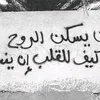 يسكن الروح
كيف للقلب إن